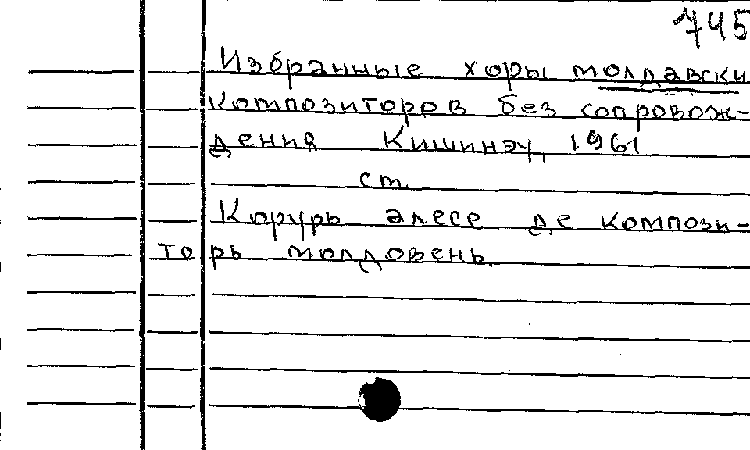 745
Избранные хоры молдавски
композиторов без сопровож-
дения Кишинэу, 1961
ст.
Корурь алесе де компози-
торь молдовень